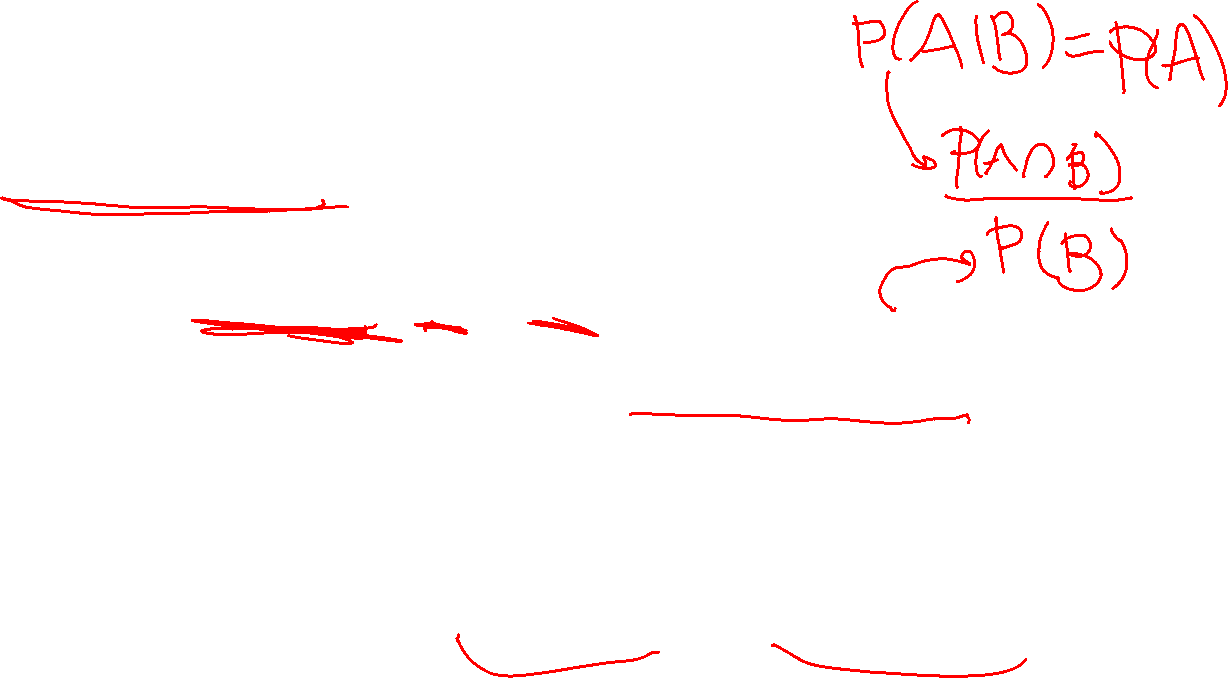 P(A|B)=P(A)
P(A∩B)
P(B)